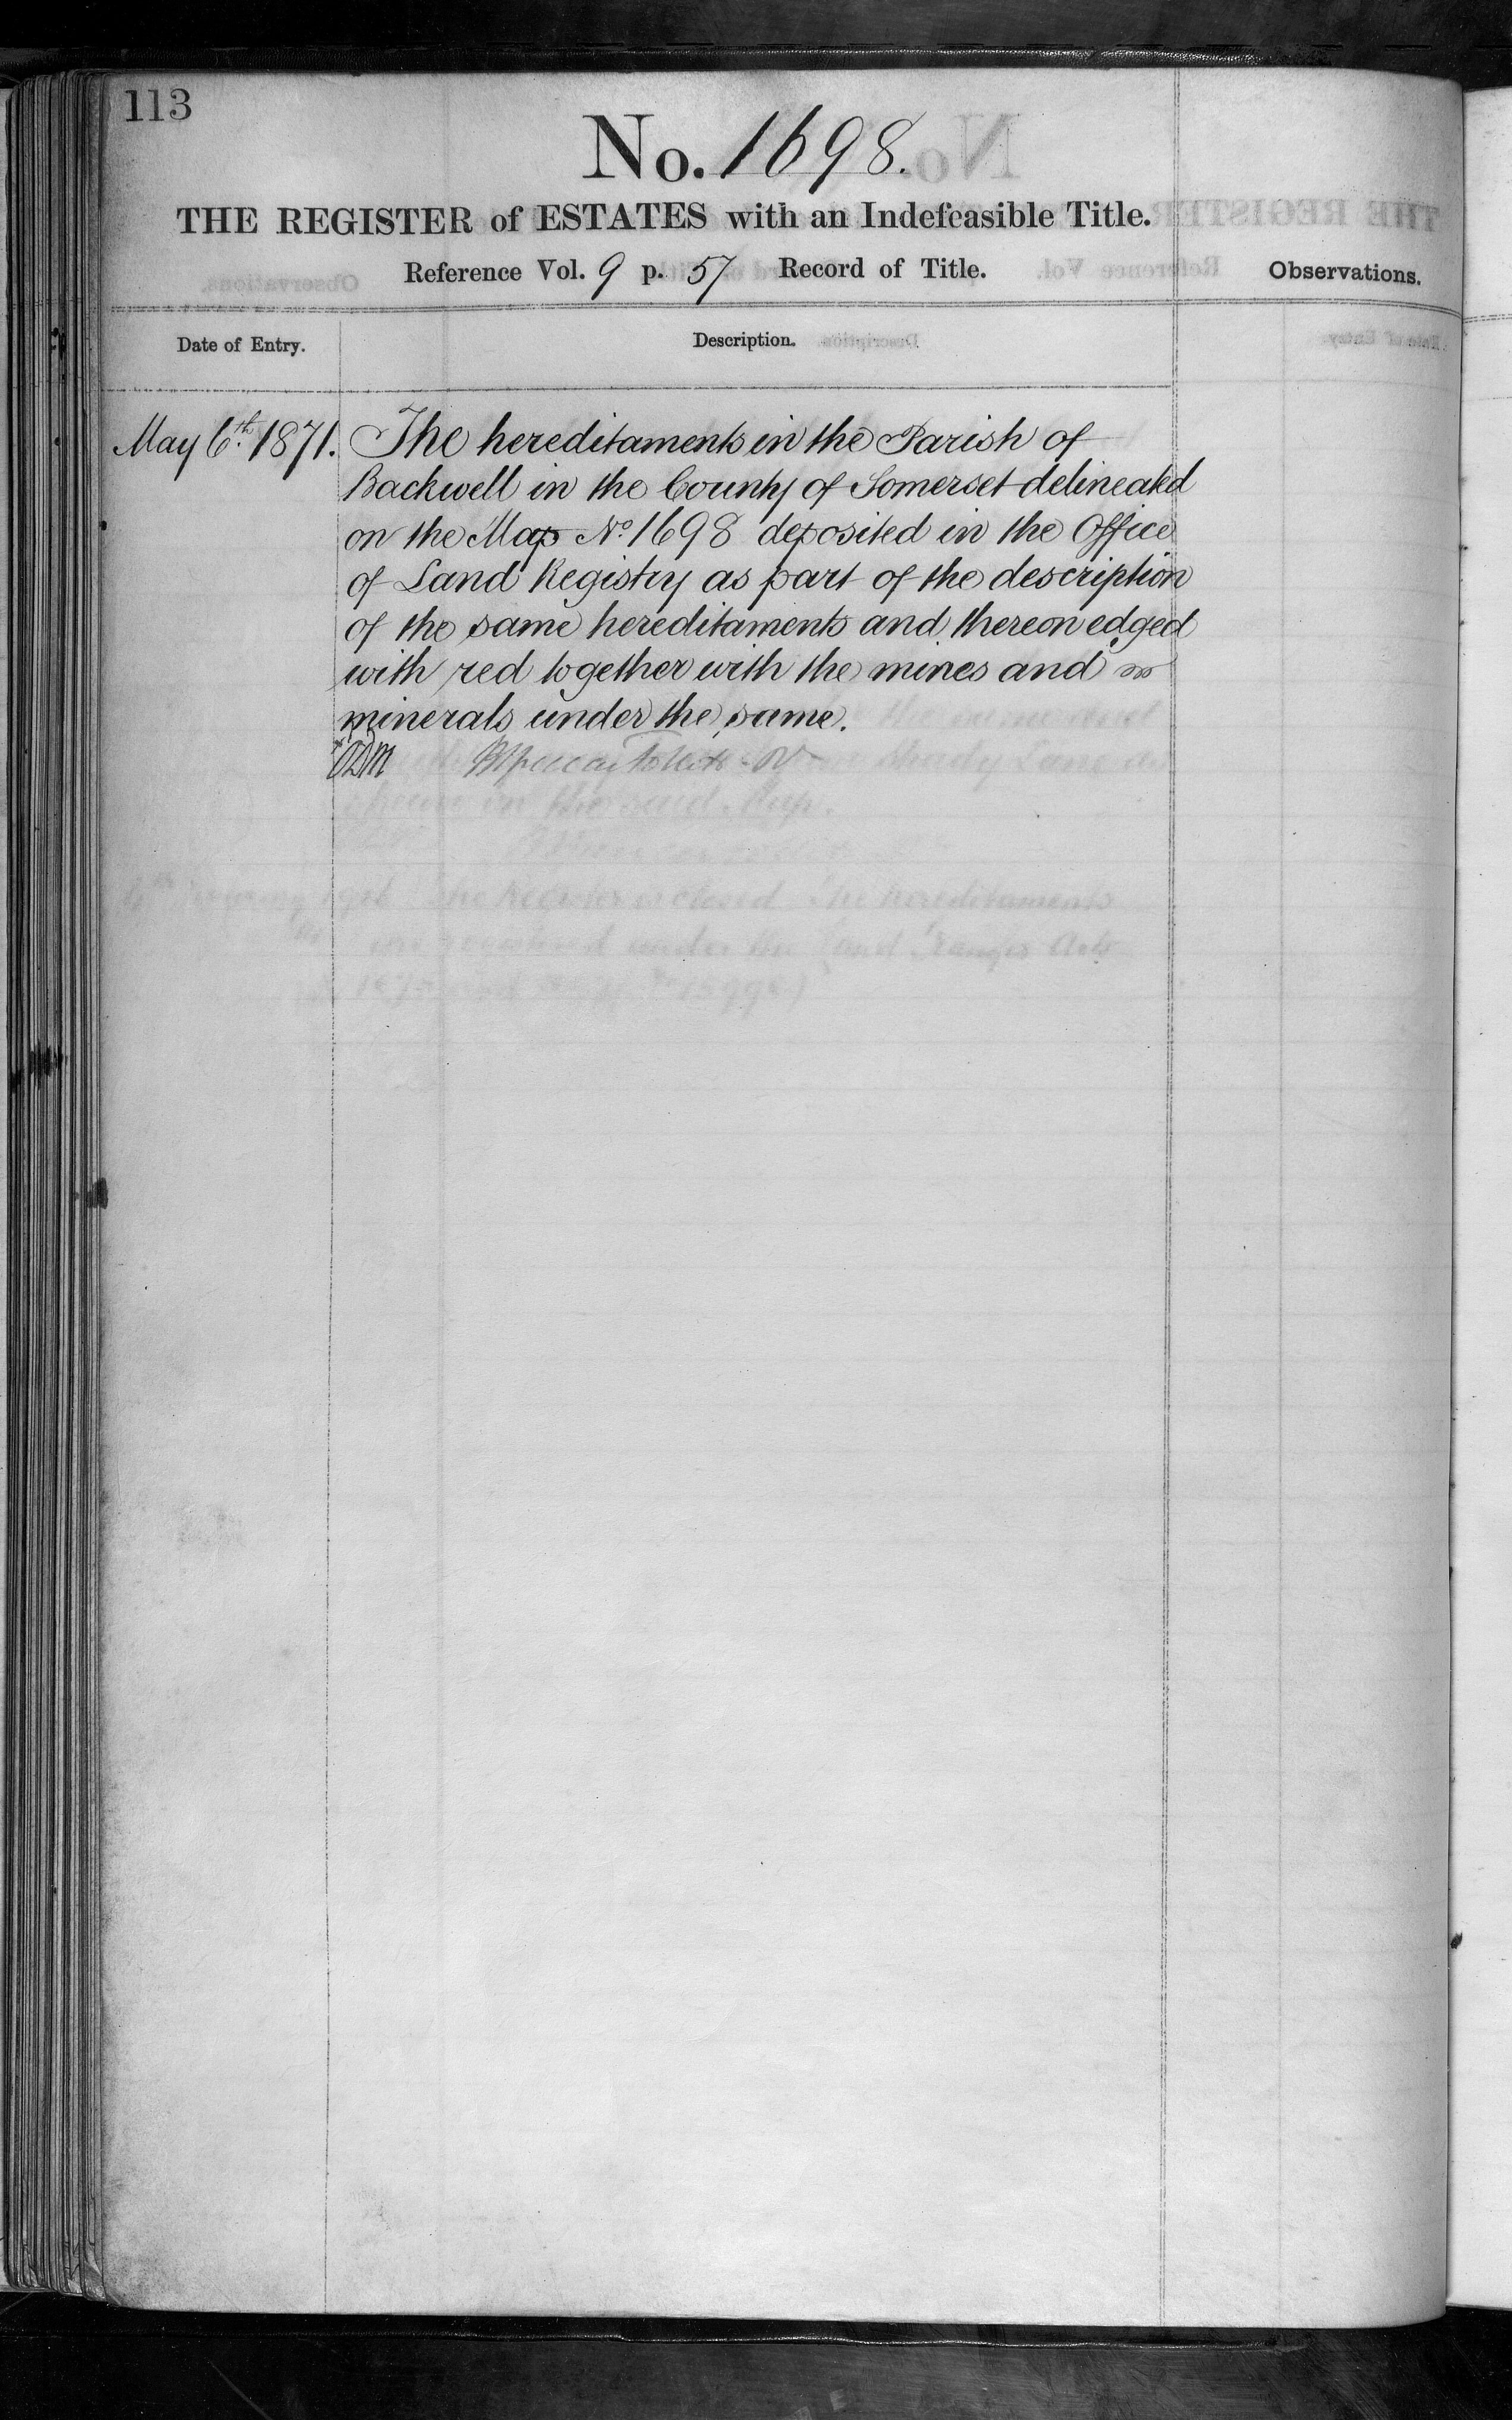 113
No. 1698.
THE REGISTER of ESTATES with an Indefeasible Title.
Reference Vol. 9 p. 57 Record of Title.
Observations.
Date of Entry.
Description.
May 6th. 1871. The hereditaments in the Parish of
Backwell in the County of Somerset delineated
on the Map No. 1698 deposited in the Office
of Land Registry as part of the description
of the same hereditaments and thereon edged
with red together with the mines and
minerals under the same.